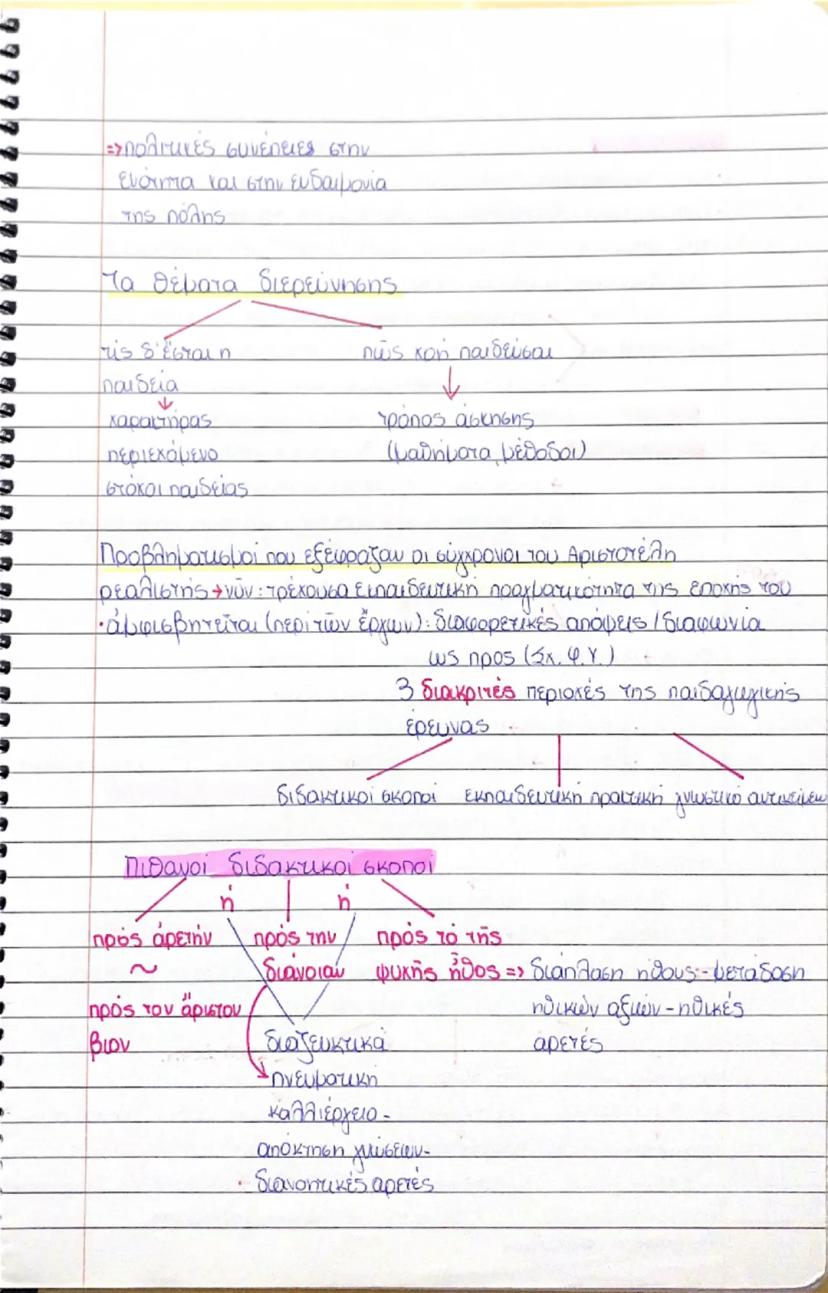 ⇒πολιτικές συνέπειες στην
ενότητα και στην ευδαιμονία
της πόλης
Τα θέματα διερεύνησης
τίς δ' ἔσται η πῶς χρή παιδεύεσθαι
παιδεία
χαρακτήρας τρόπος άσκησης
περιεχόμενο (μαθήματα, μέθοδοι)
στόχοι παιδείας
Προβληματισμοί που εξέφραζαν οι σύγχρονοι του Αριστοτέλη
ρεαλιστής→νῦν: τρέχουσα εκπαιδευτική πραγματικότητα της εποχής του
·ἀμφισβητεῖται (περί τῶν ἔργων): διαφορετικές απόψεις / διαφωνία
ως προς (Σχ. Φ.Υ.)
3 διακριτές περιοχές της παιδαγωγικής
έρευνας
διδακτικοί σκοποί εκπαιδευτική πρακτική γνωστικό αντικείμενο
Πιθανοί διδακτικοί σκοποί
ή ή
πρός ἀρετήν πρός την πρός τό τῆς
~ διάνοιαν ψυχῆς ἦθος ⇒ διάπλαση ήθους-μετάδοση
πρός τον ἄριστον ηθικών αξιών-ηθικές
βιον διαζευκτικά αρετές
πνευματική
καλλιέργεια-
απόκτηση γνώσεων-
διανοητικές αρετές